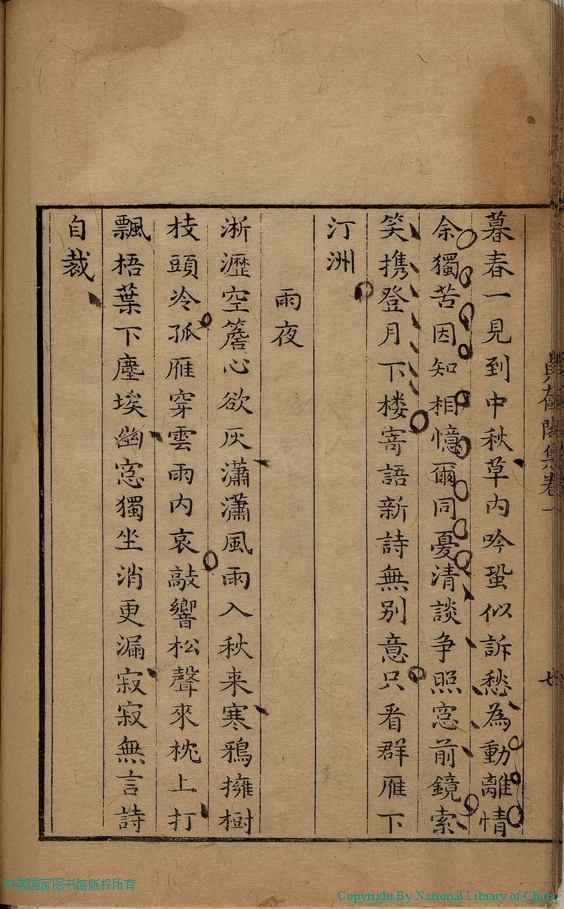 暮春一見到中秋草内吟蛩似訴愁為動離情
余獨苦因知相憶爾同憂清談争照窓前鏡索
笑携登月下楼寄語新詩無别意只看群雁下
汀洲
雨夜
淅瀝空簷心欲灰瀟瀟風雨入秋来寒鴉擁樹
枝頭冷孤雁穿雲雨内哀敲響松聲來枕上打
飄梧葉下塵埃幽窓獨坐消更漏寂寂無言詩
自裁
集卷一
中国国家图书馆版权所有
Copyright By National Library of China